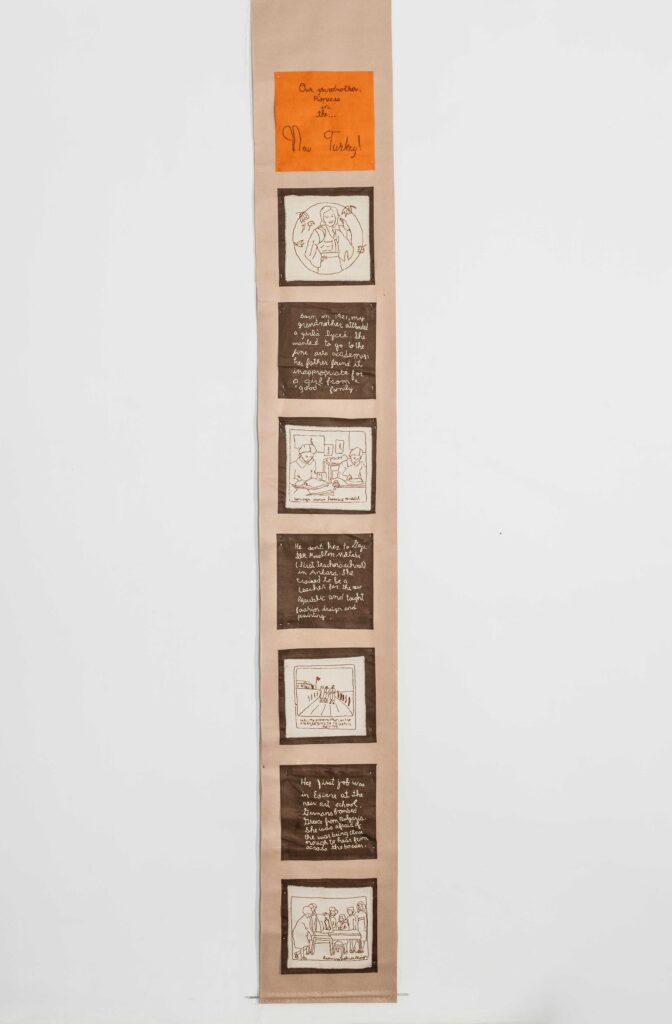 Our grandmother,
Princess
in
the...
New Turkey!
Born in 1921, my
grandmother attended
a girl's lyceé. She
wanted to go to the
fine arts academy.
her father found it
inappropriate for
a girl from a
"good" family
He sent her to Gazi
(first teachers school)
in Ankara. She
trained to be a
teacher for the new
Republic and taught
fashion design and
painting.
Her first job was
in Edirne at the
new art school.
Germans bombed
Greece from Bulgaria.
She was afraid of
the war being close
enough to hear from
across the border.